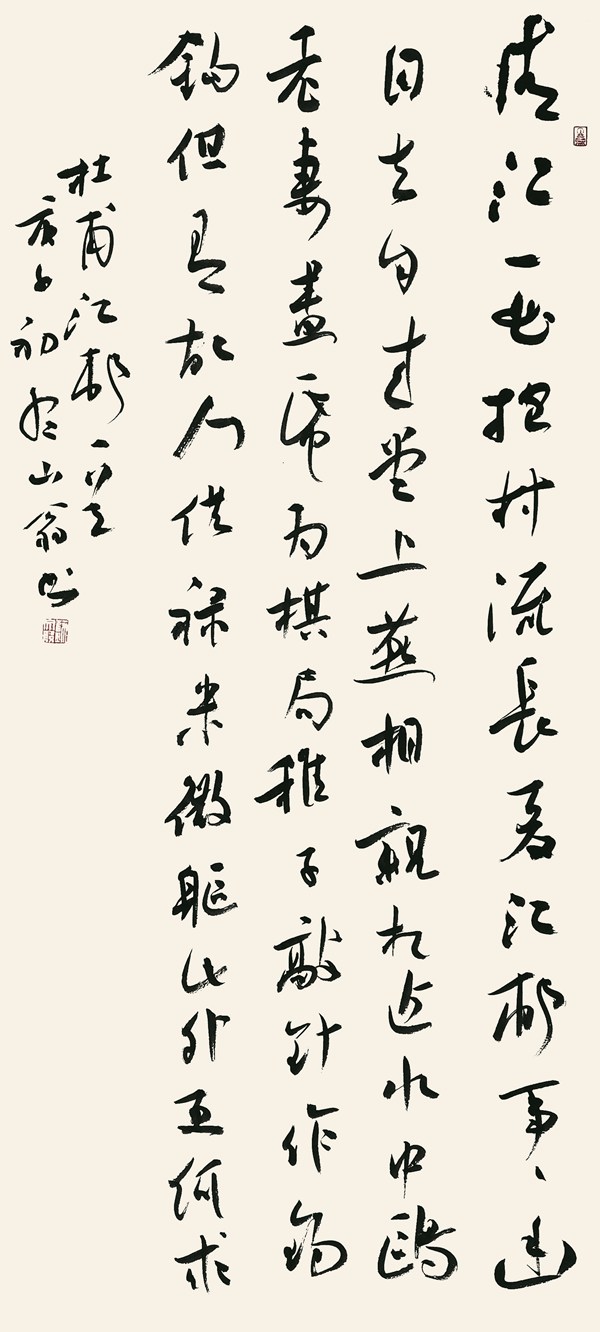 清江一曲抱村流長夏江邨事、幽
自去自來堂上燕相親相近水中鷗
老妻畫帋為棋局稚子敲針作釣
鈎但有故人供祿米微軀此外更何求
杜甫江邨一首
庚子初山翁書